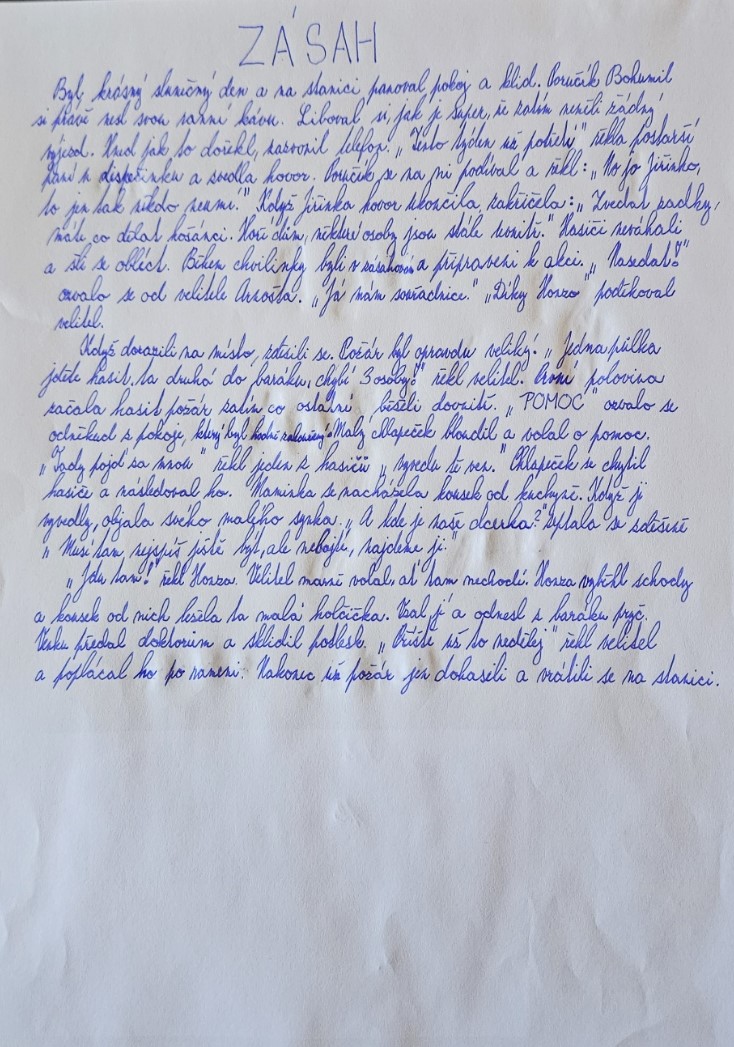 ZÁSAH
Byl krásný slunečný den a na stanici panoval pokoj a klid. Poručík Bohumil
si právě nesl svou ranní kávu. Liboval si, jak je super, že zatím neměli žádný
výjezd. Hned jak to dořekl, zazvonil telefon. „Tento týden už potřetí" řekla postarší
paní z dispečinku a zvedla hovor. Poručík se na ni podíval a řekl: „No jo Jiřinko,
to jen tak někdo neumí." Když Jiřinka hovor ukončila, zakřičela: „Zvedat zadky,
máte co dělat košánci. Hoří dům, některé osoby jsou stále uvnitř." Hasiči neváhali
a šli se obléct. Během chvilinky byli v a připraveni k akci. „Nasedat!"
ozvalo se od velitele Arnošta. „Já mám souřadnice." „Díky Honzo" poděkoval
velitel.
Když dorazili na místo, zděsili se. Požár byl opravdu veliký. „Jedna půlka
jděte hasit, ta druhá do baráku, chybí 3 osoby!" řekl velitel. První polovina
začala hasit požár zatím co ostatní běželi dovnitř. „POMOC" ozvalo se
odněkud z pokoje, který byl hodně zakouřený. Malý chlapeček bloudil a volal o pomoc.
„Tady pojď za mnou" řekl jeden z hasičů „vyvedu tě ven." Chlapeček se chytil
hasiče a následoval ho. Maminka se nacházela kousek od kuchyně. Když ji
vyvedly, objala svého malého synka. „A kde je naše dcerka?" zeptala se zděšeně
„Musí tam nejspíš ještě být, ale nebojte, najdeme ji."
„Jdu tam!" řekl Honza. Velitel marně volal, ať tam nechodí. Honza vyběhl schody
a kousek od nich ležela ta malá holčička. Vzal jí a odnesl z baráku pryč.
Venku předal doktorům a sklidil potlesk. „Příště už to nedělej" řekl velitel
a poplácal ho po rameni. Nakonec už požár jen dohasili a vrátili se na stanici.